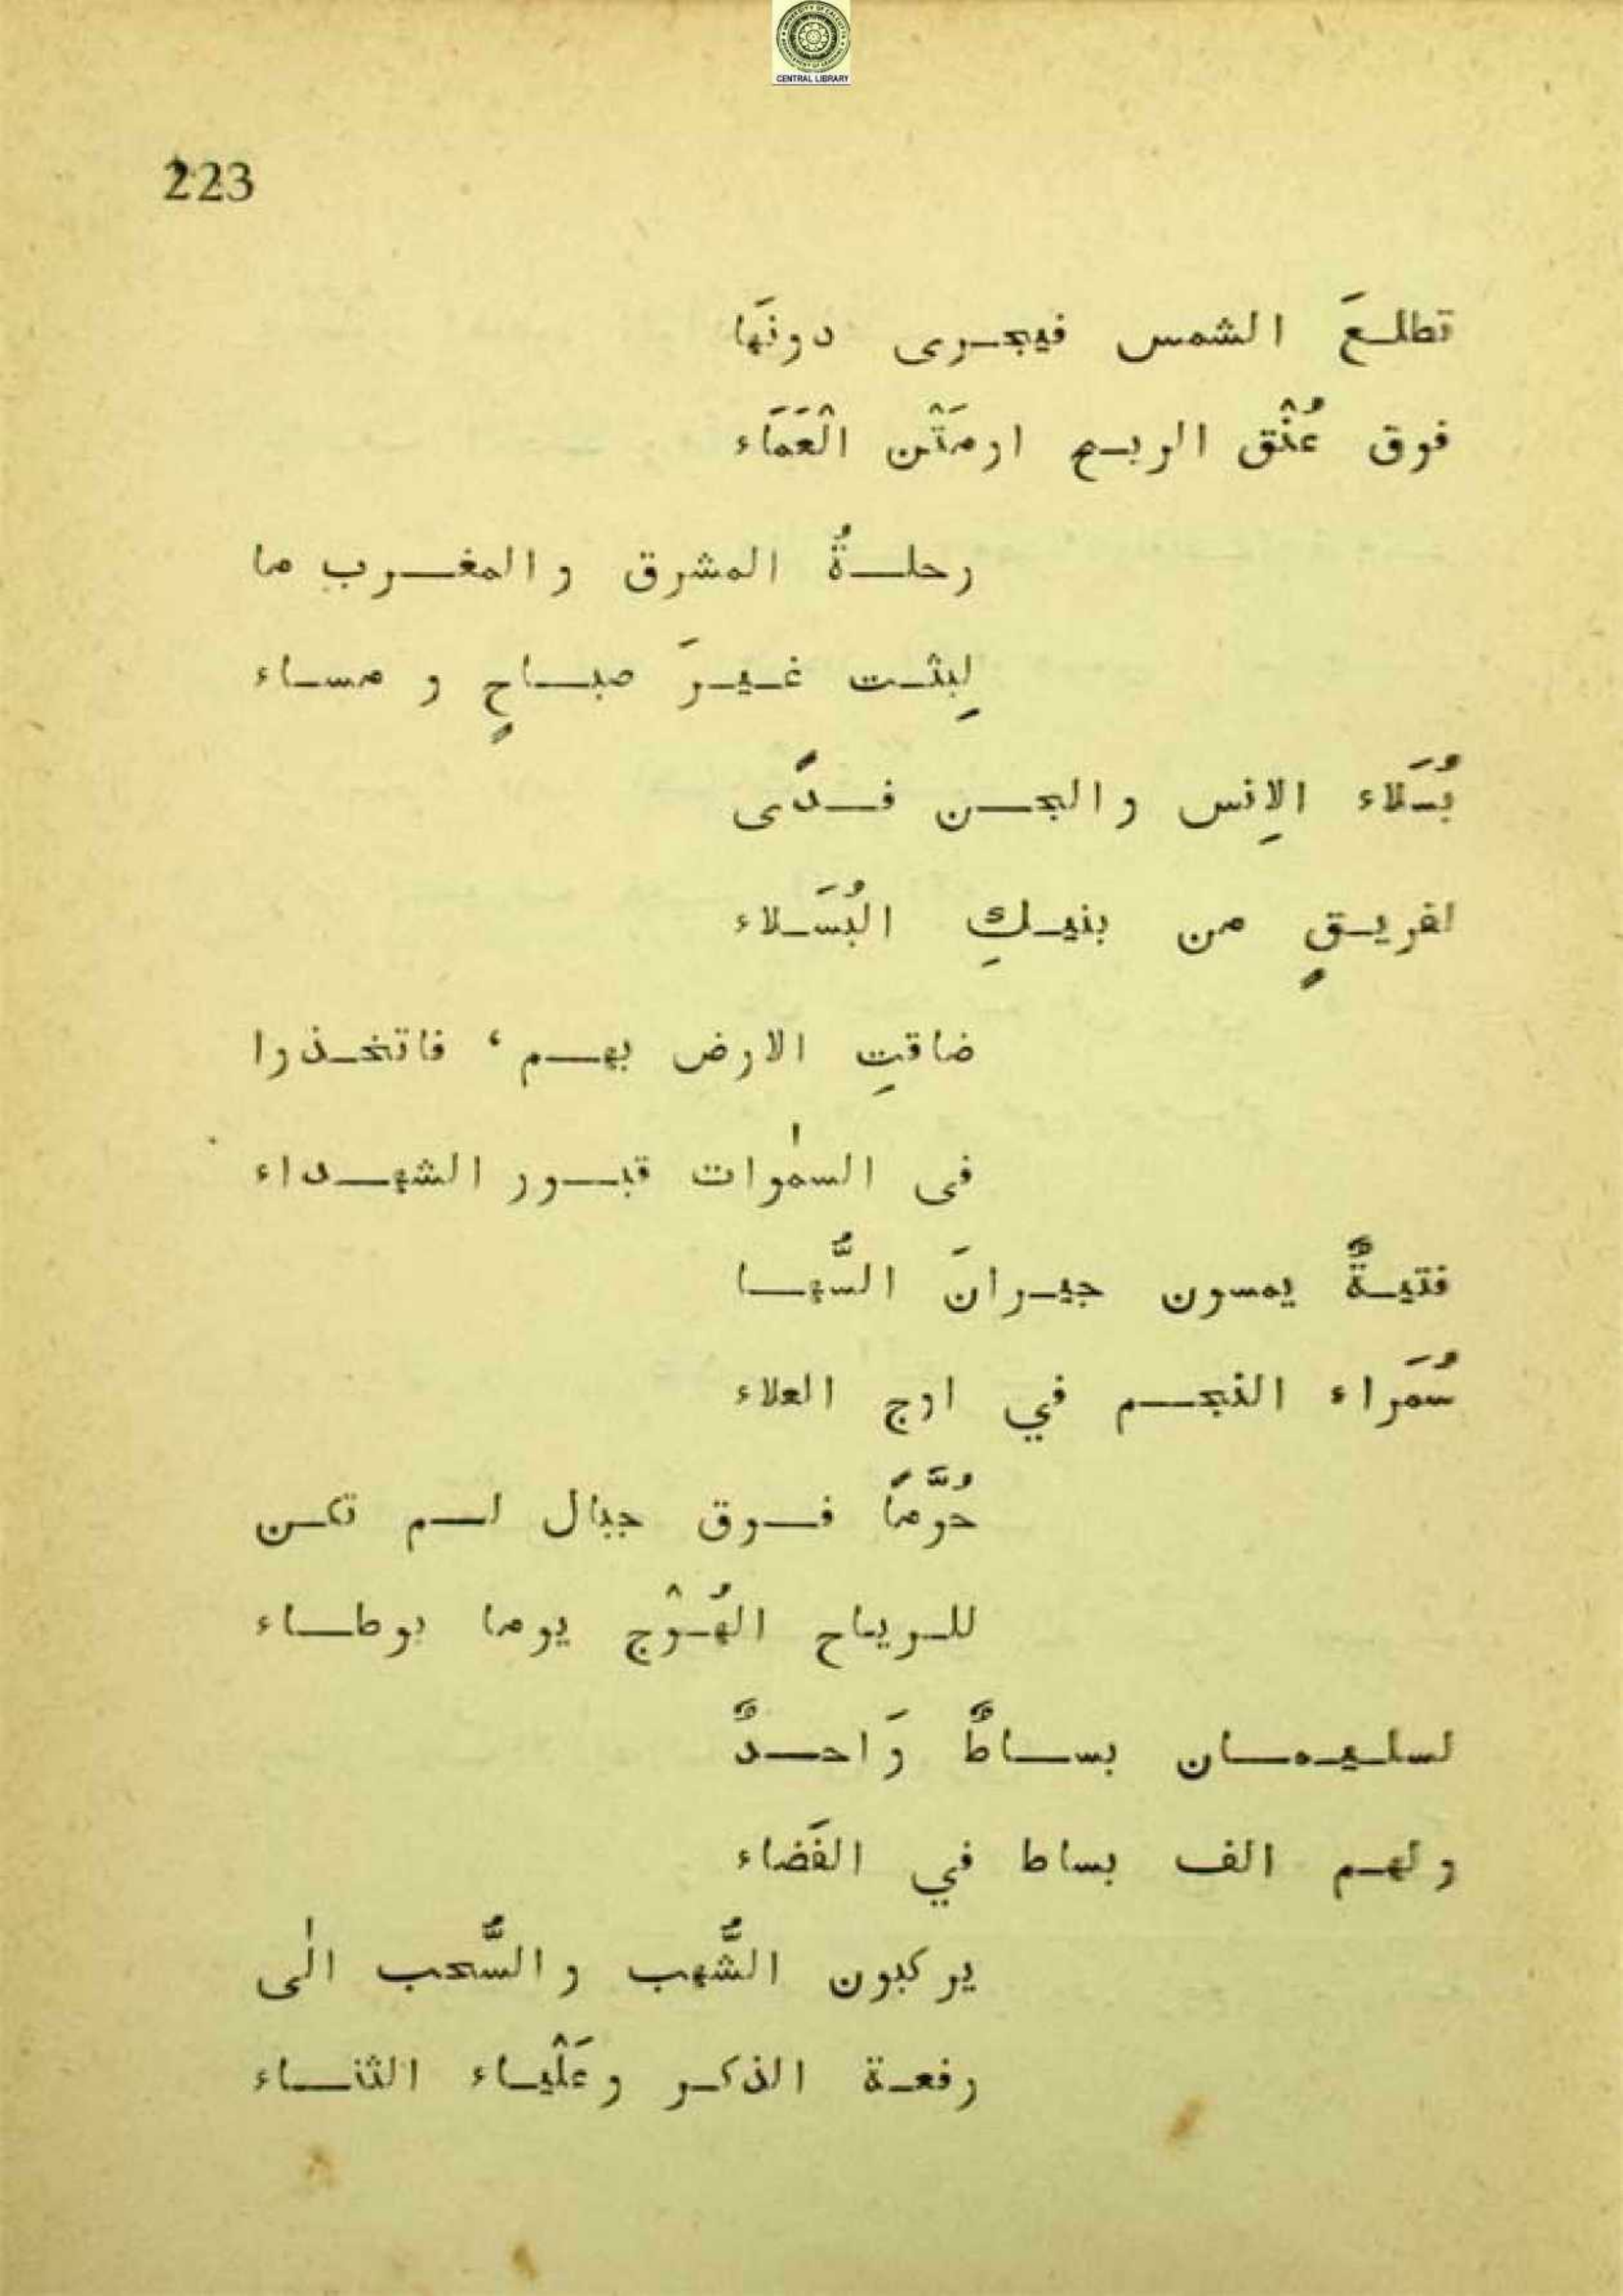 CENTRAL LIBRARY
223
تطلعَ الشمس فيجرى دونَها
فوق عُنْق الريح اومَتْن الْعَمَاء
رحلةُ المشرق والمغرب ما
لِبثت غيرَ صباحٍ و مساء
بُسَلاء الاِنس والجن فدًى
لفريقٍ من بنيكِ البُسَلاء
ضاقتِ الارض بهم، فاتخذوا
فى السمٰوات قبور الشهداء
فتيةٌ يمسون جيرانَ السُّها
سُمَراء النجم في اوج العلاء
حُوَّمًا فوق جبال لم تكن
للرياح الهُوْج يوما بوطاء
لسليمان بساطٌ وَاحدٌ
ولهم الف بساط في الفَضاء
يركبون الشُّهب والسُّحب الٰى
رفعة الذكر وعَلْياء الثناء